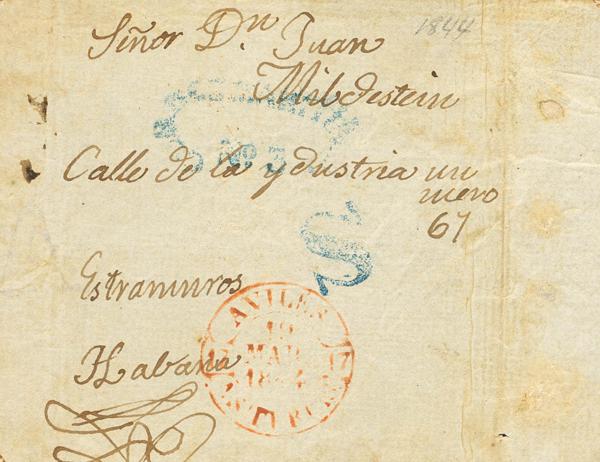 1844
Señor Dn Juan
Mildestein
No 3
Calle de la ydustria un
mero
67
S
Estramuros
AVILES
19
MAR
1844
Habana